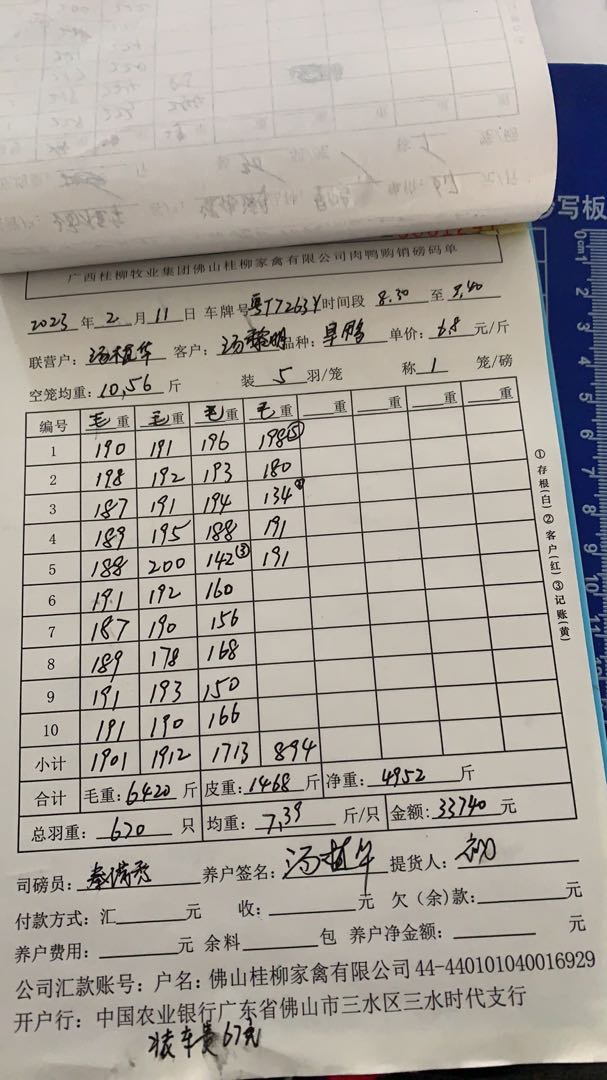 写板
0cm 1 2 3 4 5 6 7 8 9 10 11 12 13
广西桂柳牧业集团佛山桂柳家禽有限公司肉鸭购销磅码单
2023 年 2 月 11 日 车牌号 粤T7263Y 时间段 8.30 至 9.40
联营户: 汤植华 客户: 汤黎明 品种: 旱鸭 单价: 6.8 元/斤
空笼均重: 10.56 斤 装 5 羽/笼 称 1 笼/磅
编号 毛重 毛重 毛重 毛重 重 重 重 重
1 190 191 196 198⑤
2 198 192 193 180
3 187 191 194 134
4 189 195 188 191
5 188 200 142③ 191
6 191 192 160
7 187 190 156
8 189 178 168
9 191 193 150
10 191 190 166
小计 1901 1912 1713 894
合计 毛重: 6420 斤 皮重: 1468 斤 净重: 4952 斤
总羽重: 670 只 均重: 7.39 斤/只 金额: 33740 元
司磅员: 养户签名: 汤植华 提货人:
付款方式: 汇 元 收: 元 欠(余)款: 元
养户费用: 元 余料 包 养户净金额: 元
公司汇款账号: 户名: 佛山桂柳家禽有限公司 44-440101040016929
开户行: 中国农业银行广东省佛山市三水区三水时代支行
装车费67元
①存根(白)②客户(红)③记账(黄)